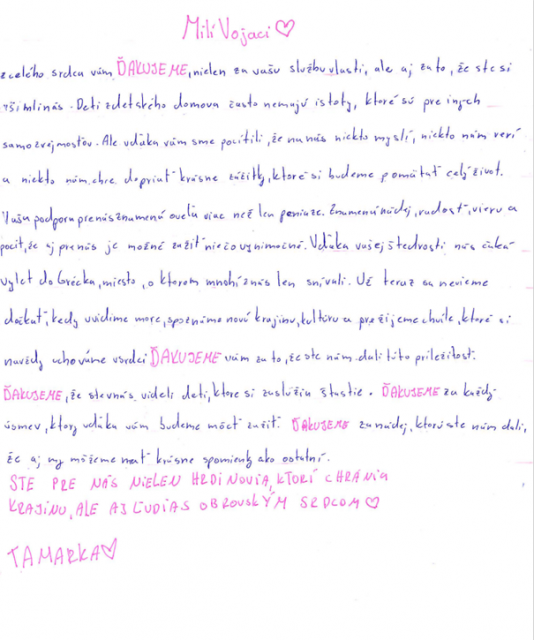 Milí Vojaci ♡
z celého srdca vám ĎAKUJEME, nielen za vašu službu vlasti, ale aj za to, že ste si
všimli nás. Deti z detského domova často nemajú istoty, ktoré sú pre iných
samozrejmosťou. Ale vďaka vám sme pocítili, že na nás niekto myslí, niekto nám verí
a niekto nám chce dopriať krásne zážitky, ktoré si budeme pamätať celý život.
Vaša podpora pre nás znamená oveľa viac než len peniaze. Znamená nádej, radosť, vieru a
pocit, že aj pre nás je možné zažiť niečo výnimočné. Vďaka vašej štedrosti nás čaká
výlet do Grécka, miesto, o ktorom mnohí z nás len snívali. Už teraz sa nevieme
dočkať, kedy uvidíme more, spoznáme novú krajinu, kultúru a prežijeme chvíle, ktoré si
navždy uchováme v srdci ĎAKUJEME vám za to, že ste nám dali túto príležitosť.
ĎAKUJEME, že ste v nás videli deti, ktoré si zaslúžia šťastie. ĎAKUJEME za každý
úsmev, ktorý vďaka vám budeme môcť zažiť. ĎAKUJEME za nádej, ktorú ste nám dali,
že aj my môžeme mať krásne spomienky ako ostatní.
STE PRE NÁS NIELEN HRDINOVIA, KTORÍ CHRÁNIA
KRAJINU, ALE AJ ĽUDIA S OBROVSKÝM SRDCOM ♡
TAMARKA ♡